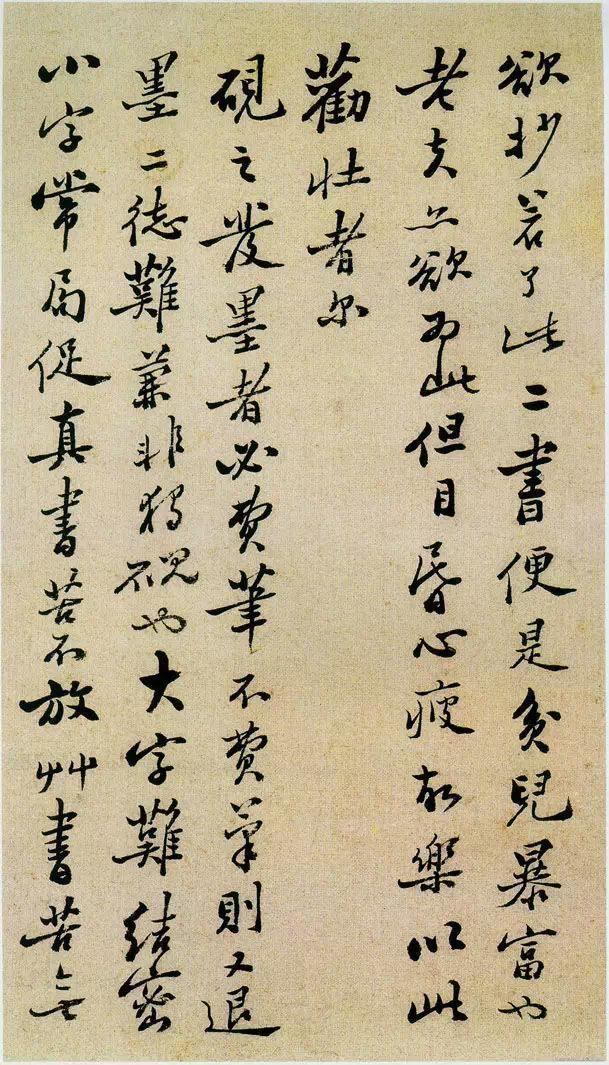 欲抄若了此二書便是貧兒暴富也
老夫亦欲為此但目昏心疲故樂以此
勸壯者尔
硯之發墨者必費筆不費筆則又退
墨二德難兼非獨硯也大字難結密
小字常局促真書苦不放艸書苦無